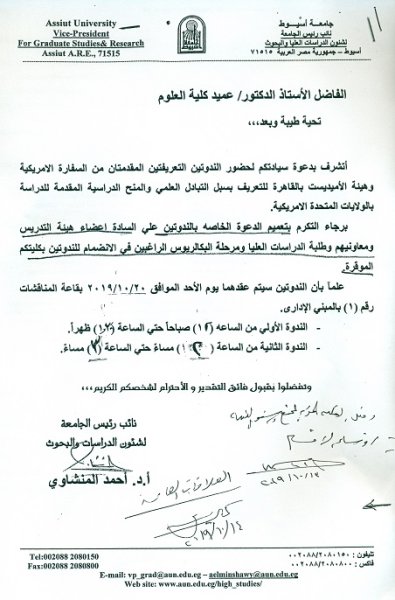 Assiut University
Vice-President
For Graduate Studies& Research
Assiut A.R.E., 71515
جامعة أسيوط
نائب رئيس الجامعة
لشئون الدراسات العليا والبحوث
أسيوط - جمهورية مصر العربية ٧١٥١٥
الفاضل الأستاذ الدكتور/ عميد كلية العلوم
تحية طيبة وبعد،،،
أتشرف بدعوة سيادتكم لحضور الندوتين التعريفتين المقدمتان من السفارة الامريكية
وهيئة الأميديست بالقاهرة للتعريف بسبل التبادل العلمي والمنح الدراسية المقدمة للدراسة
بالولايات المتحدة الامريكية.
برجاء التكرم بتعميم الدعوة الخاصه بالندوتين علي السادة اعضاء هيئة التدريس
ومعاونيهم وطلبة الدراسات العليا ومرحلة البكالريوس الراغبين في الانضمام للندوتين بكليتكم
الموقرة.
علماً بأن الندوتين سيتم عقدهما يوم الأحد الموافق ٢٠١٩/١٠/٢٠ بقاعة المناقشات
رقم (١) بالمبني الإدارى.
- الندوة الأولي من الساعه صباحاً حتي الساعة ظهراً.
- الندوة الثانية من الساعة مساءً حتي الساعة (٣) مساءً.
وتفضلوا بقبول فائق التقدير و الأحترام لشخصكم الكريم،،،
نائب رئيس الجامعة
لشئون الدراسات والبحوث
أ.د. أحمد المنشاوي
٢٠١٩/١٠/١٤
العلاقات الثقافية
٢٠١٩/١٠/١٤
Tel:002088 2080150
Fax:002088 2080800
تليفون : ٠٠٢٠٨٨/٢٠٨٠١٥٠
فاكس : ٠٠٢٠٨٨/٢٠٨٠٨٠٠
E-mail: vp_grad@aun.edu.eg – aelminshawy@aun.edu.eg
Web site: www.aun.edu.eg/high_studies/